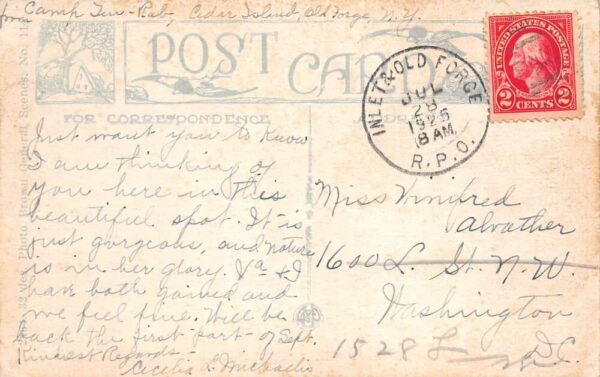 from Camp Tun-Rab, Cedar Island, Old Forge, N.Y.
POST CARD
FOR CORRESPONDENCE
Just want you to know
I am thinking of
you here in this
beautiful spot. It is
just gorgeous, and nature
is in her glory. Va & I
have both gained and
we feel fine. Will be
back the first part of Sept.
Kindest Regards—
Cecelia L. Michaelis
INLET & OLD FORGE
JUL
28
1925
8 AM
R.P.O.
UNITED STATES POSTAGE
2 CENTS 2
Miss Winifred
Alvather
1600 L. St. N.W.
Washington
D.C.
1528 L